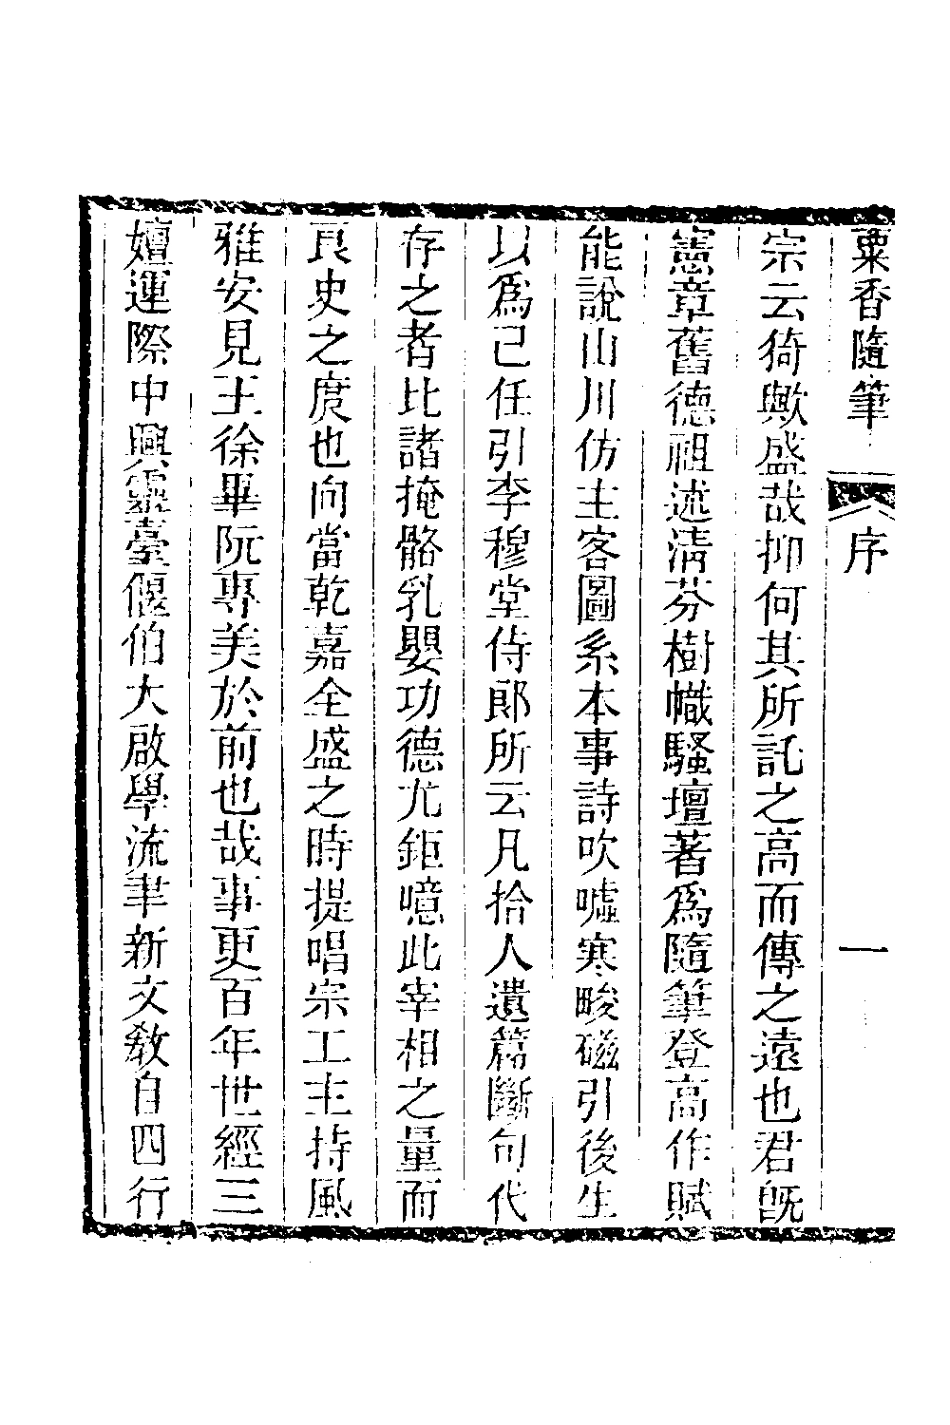 粟香隨筆 序 一
宗云猗歟盛哉抑何其所託之高而傳之遠也君旣
憲章舊德祖述清芬樹幟騷壇著爲隨筆登高作賦
能說山川仿主客圖系本事詩吹噓寒畯磁引後生
以爲己任引李穆堂侍郎所云凡拾人遺篇斷句代
存之者比諸掩骼乳嬰功德尤鉅噫此宰相之量而
良史之度也向當乾嘉全盛之時提唱宗工主持風
雅安見王徐畢阮專美於前也哉事更百年世經三
嬗運際中興靈臺偃伯大啟學流聿新文教自四行